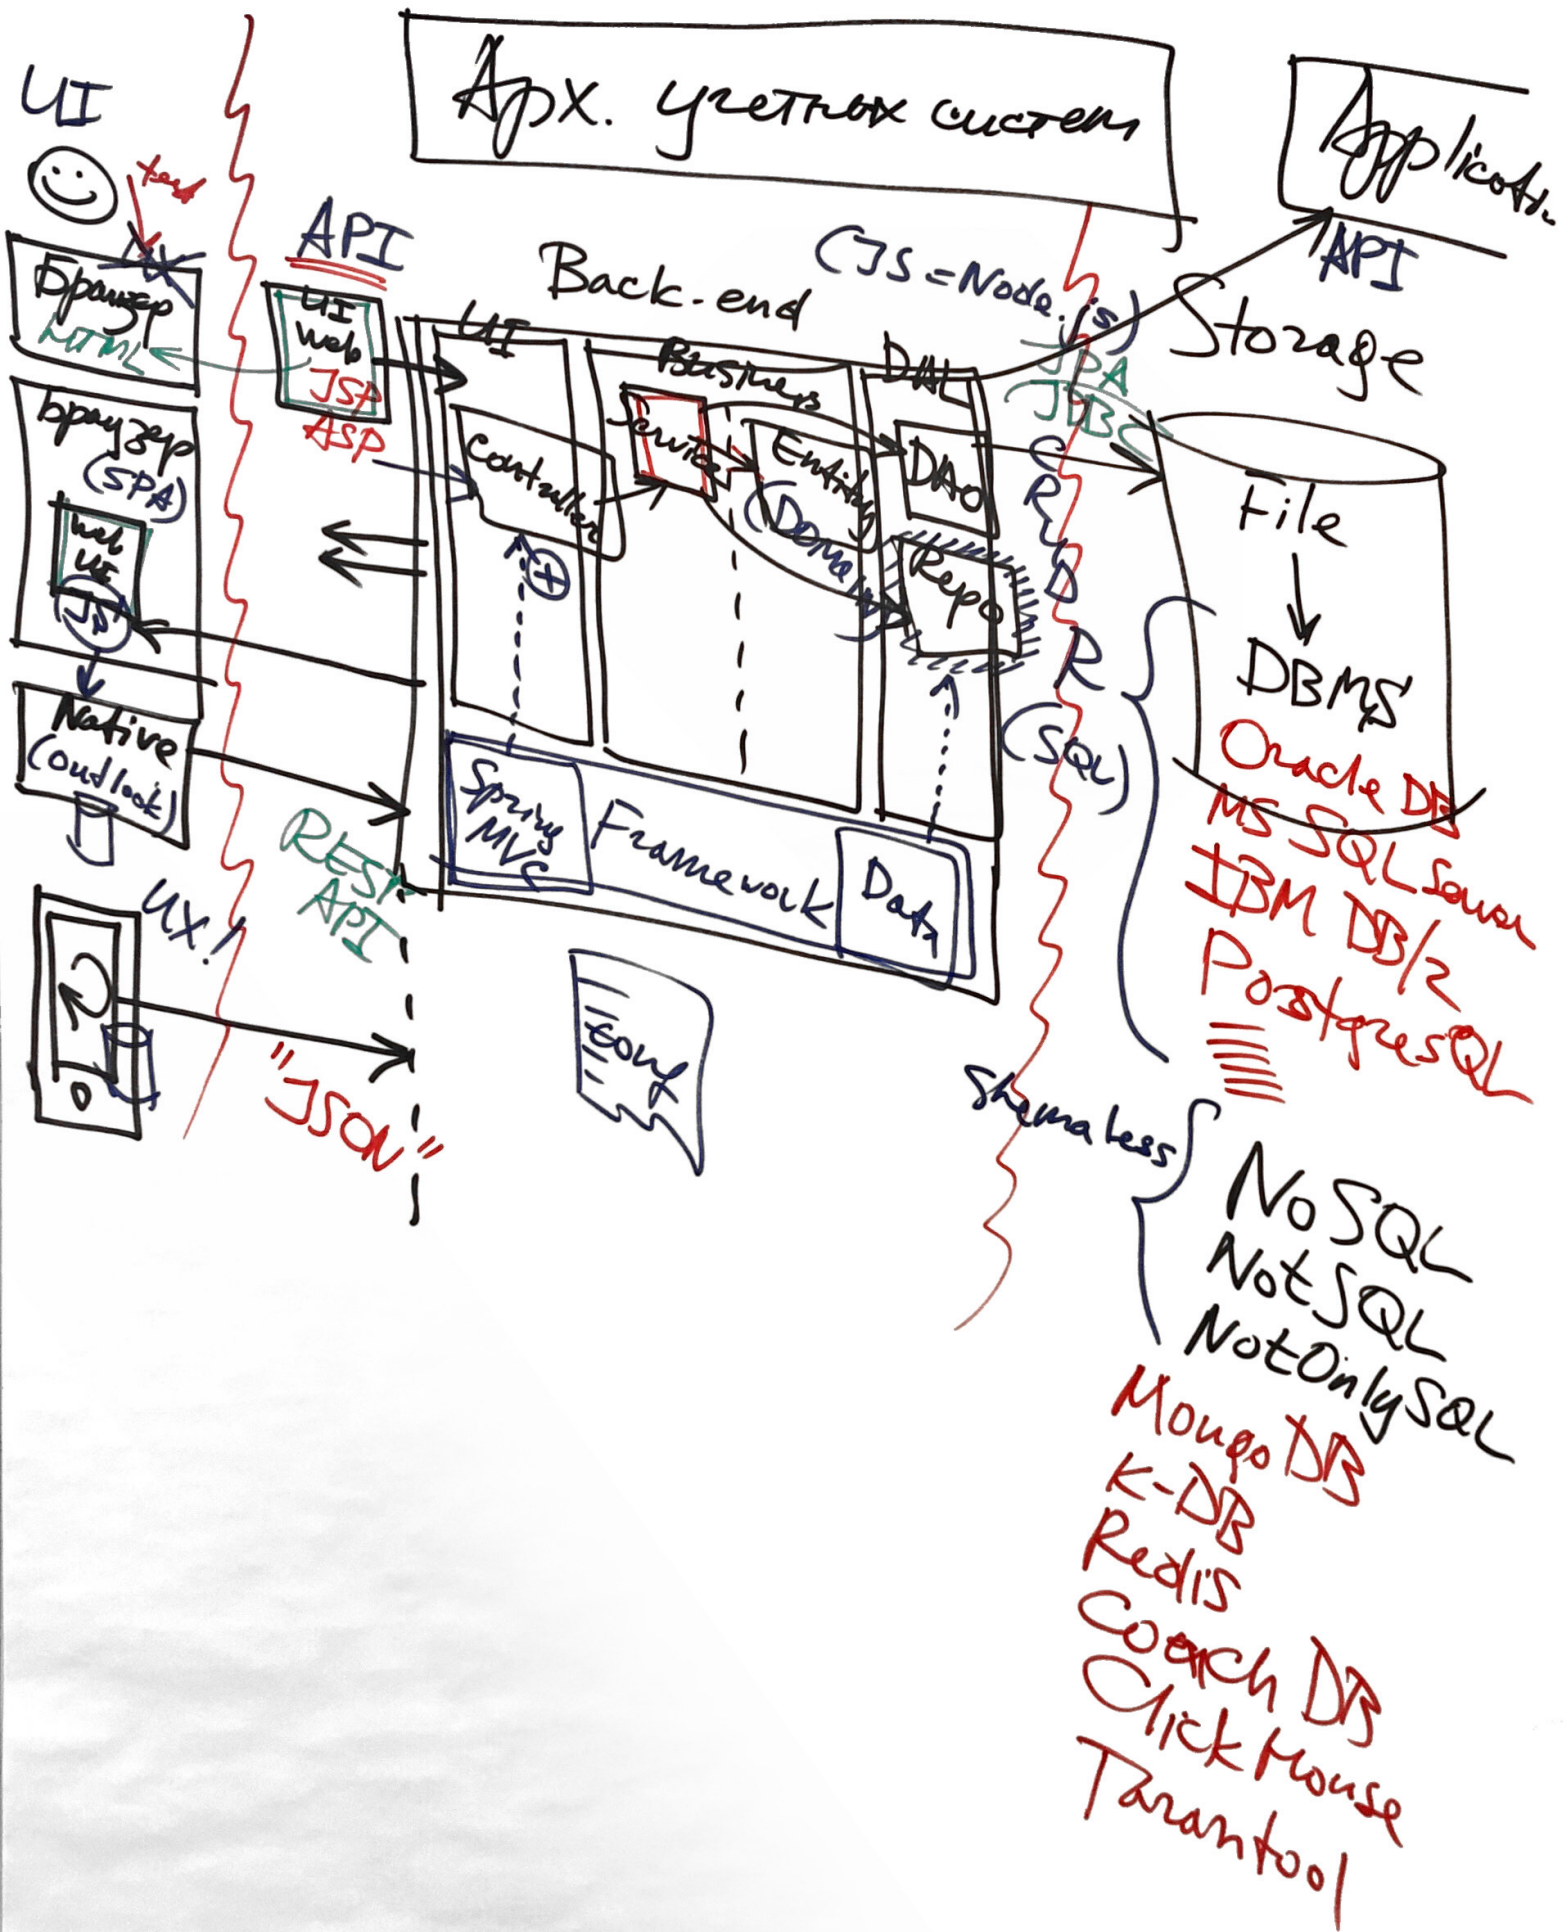 Арх. учетных систем
UI
test
Браузер
HTML
Браузер
(SPA)
Web
UI
JS
Native
(outlook)
UX!
API
UI
Web
JSP
ASP
REST
API
"JSON"
Back-end
(JS = Node.js)
UI
Controller
Business
Service
Entity
(Domain)
DAL
DAO
Repo
Spring
MVC
Framework
Data
conf
Applicat.
API
Storage
JPA
JDBC
CRUD
R
(SQL)
File
DBMS
Oracle DB
MS SQL Server
IBM DB/2
PostgresQL
Shemaless
NoSQL
NotSQL
NotOnlySQL
MongoDB
K-DB
Redis
Coach DB
ClickHouse
Tarantool